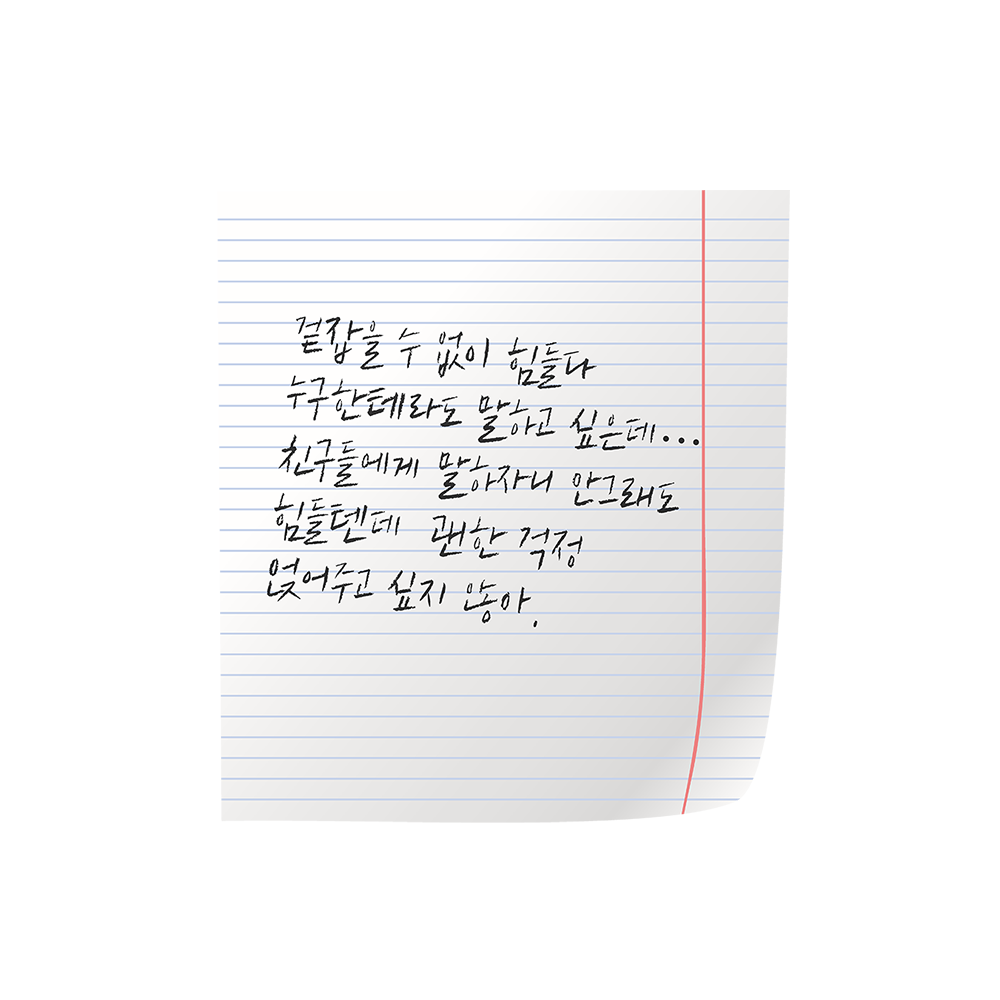 겉잡을 수 없이 힘들다
누구한테라도 말하고 싶은데...
친구들에게 말하자니 안그래도
힘들텐데 괜한 걱정
얹어주고 싶지 않아.